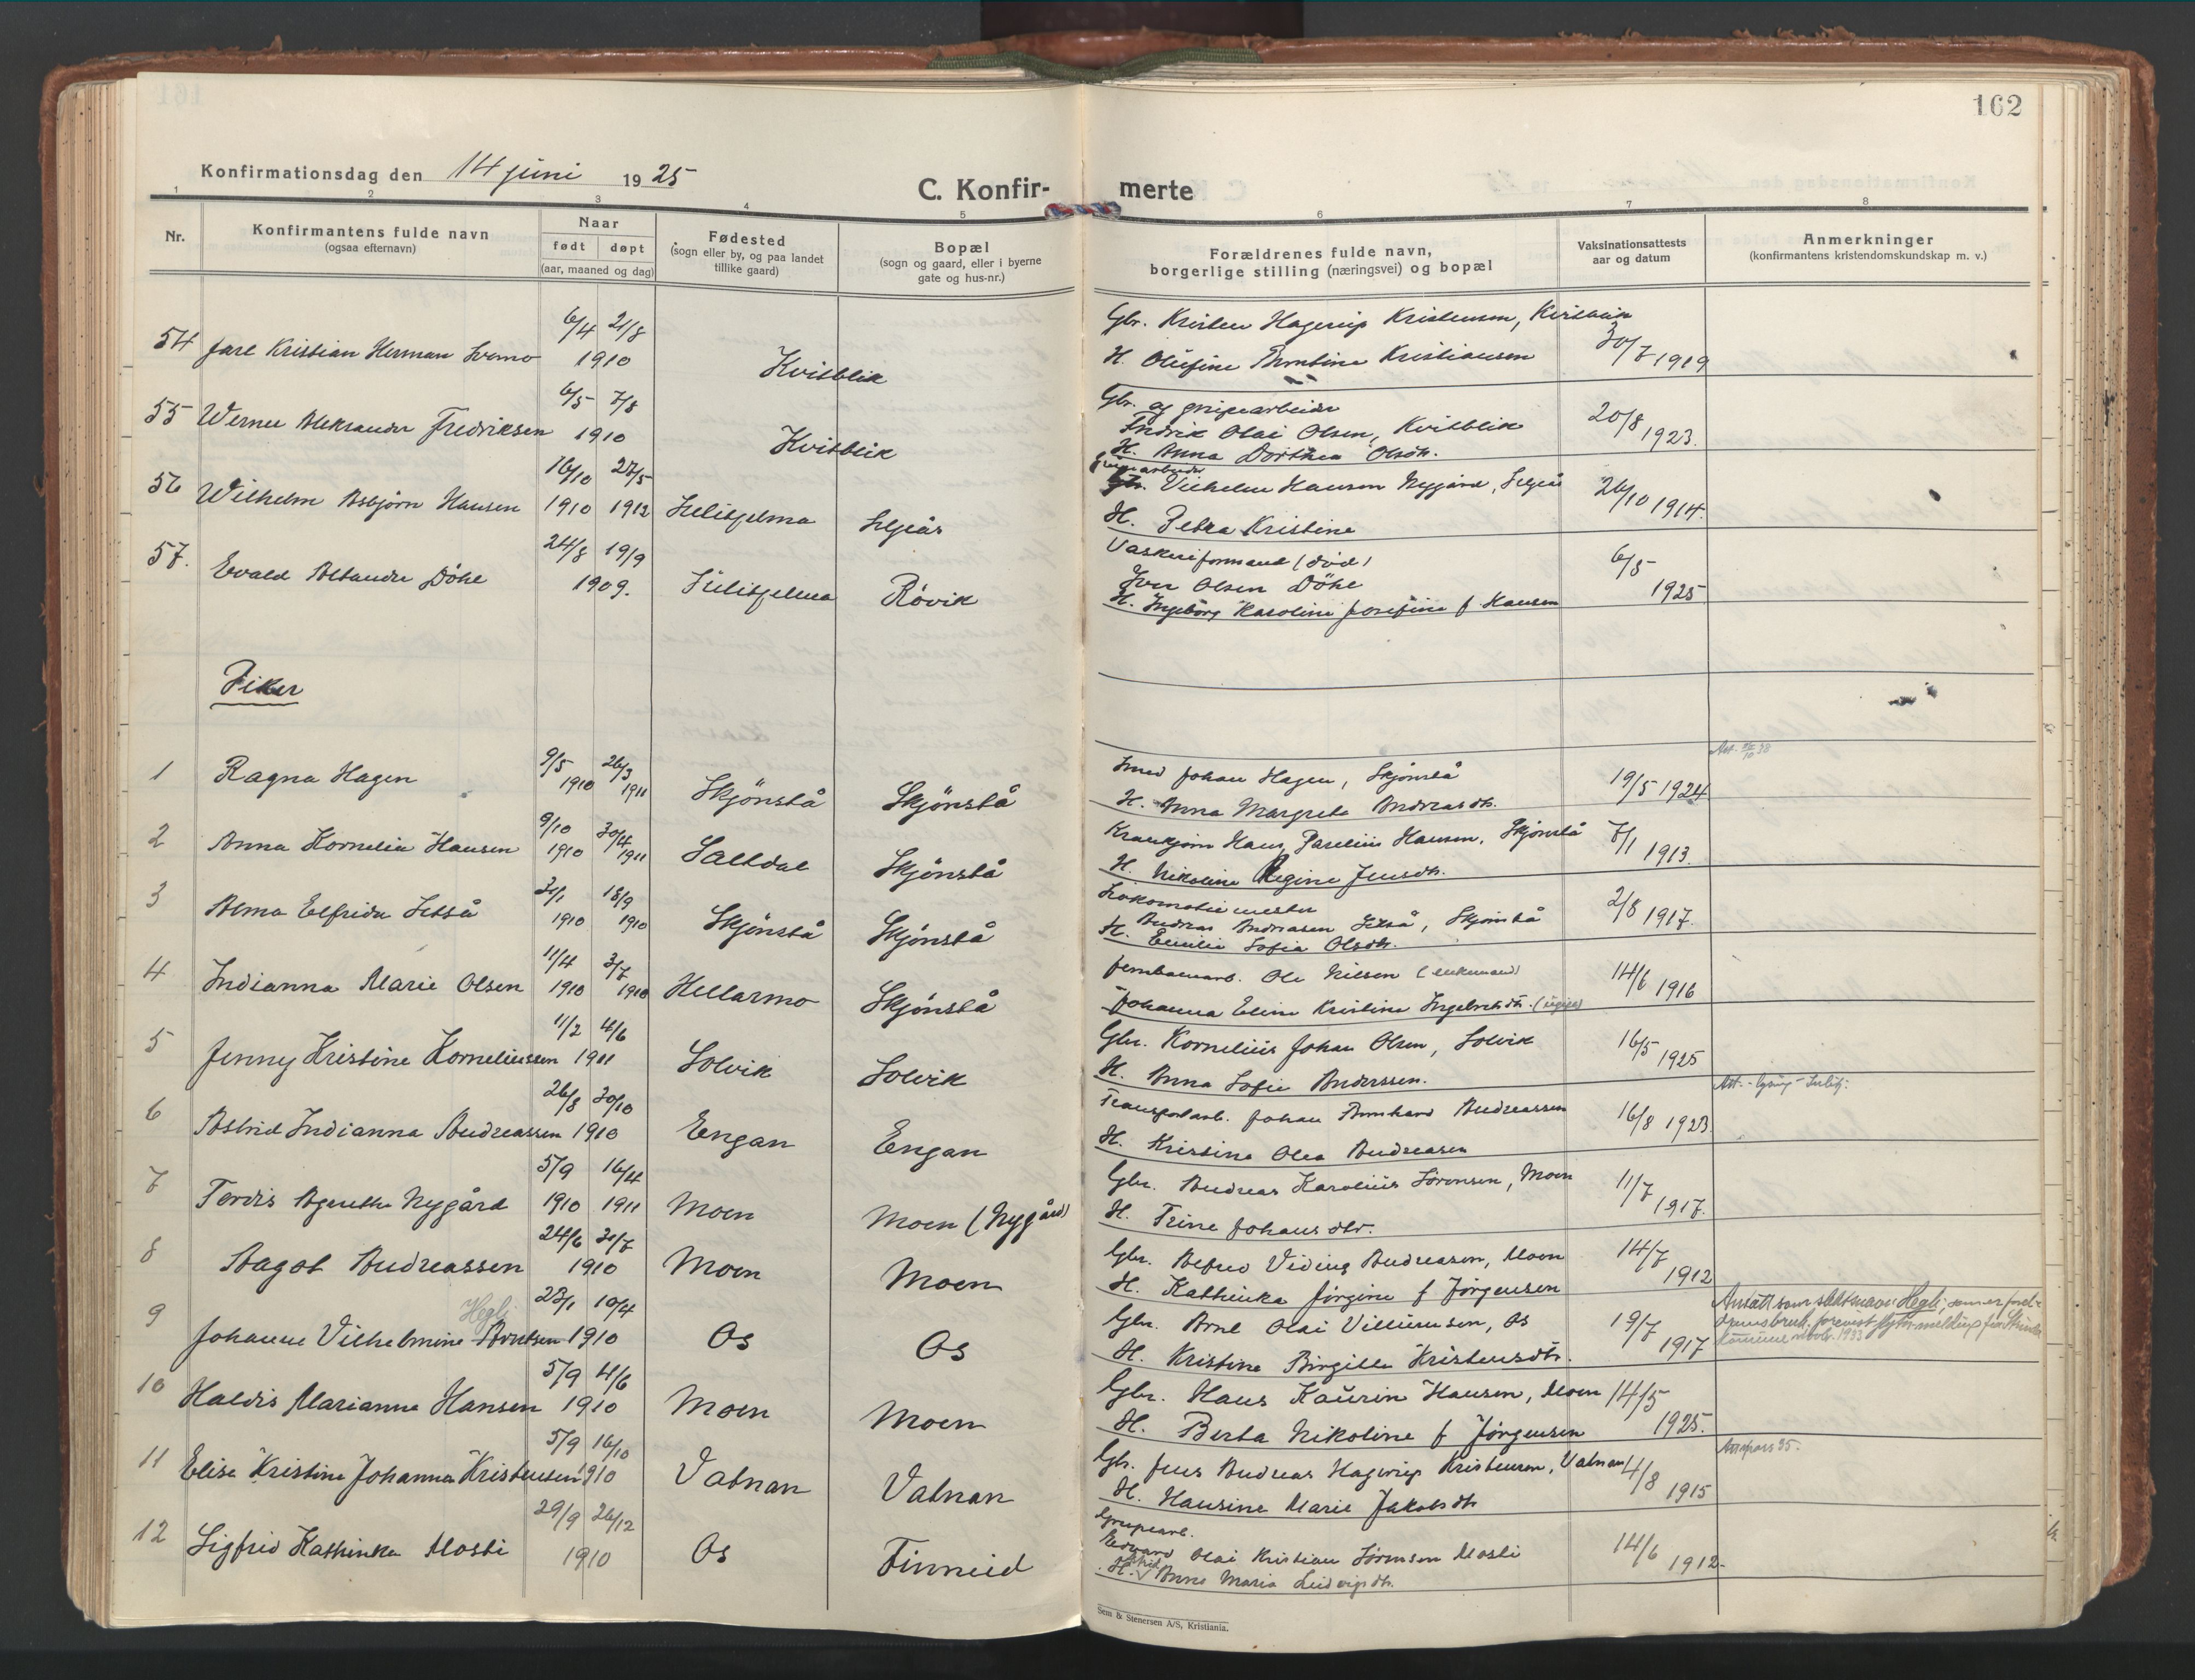 162
Konfirmationsdag den 14 juni 1925
C. Konfir- merte
1 2 3 4 5 6 7 8
Nr.
Konfirmantens fulde navn
(ogsaa efternavn)
Naar
født døpt
(aar, maaned og dag)
Fødested
(sogn eller by, og paa landet
tillike gaard)
Bopæl
(sogn og gaard, eller i byerne
gate og hus-nr.)
Forældrenes fulde navn,
borgerlige stilling (næringsvei) og bopæl
Vaksinationsattests
aar og datum
Anmerkninger
(konfirmantens kristendomskundskap m. v.)
6/4 21/8 Gbr. Kristen Hagerup Kristensen, Kvitblik
54 Jarl Kristian Herman 1910 Kvitblik H. Olufine Kristiansen 30/7 1919
6/5 7/8 Gbr. og grubearbeider
55 Werner Aleksander Fredriksen 1910 Kvitblik Fredrik Olai Olsen, Kvitblik 20/8 1923.
H. Anna Dorthea Olsdtr.
16/10 27/5 grubearbeider
56 Wilhelm Asbjørn Hansen 1910 1912 Sulitjelma Seljeås Vilhelm Hansen Nygård, Seljeås 26/10 1914.
H. Petra Kristine
24/8 19/9 Vaskeriformand (død)
57. Evald Døhl 1909. Sulitjelma Røvik Iver Olsen Döhl 6/5 1925
H. Ingeborg Karoline Josefine f Hansen
Piker
9/5 26/3
1 Ragna Hagen 1910 1911 Skjönstå Skjönstå Smed Johan Hagen, Skjönstå 19/5 1924
H. Anna Margreta Andreasdtr.
9/10 30/4
2 Anna Kornelia Hansen 1910 1911 Saltdal Skjönstå Hans Parelius Hansen, Skjönstå 7/1 1913.
H. Nikoline Regine Jensdtr.
31/1 18/9 Lokomotivmester
3 Alma Elfrida Setså 1910 1910 Skjönstå Skjönstå Andreas Andreasen Setså, Skjönstå 2/8 1917.
H. Emilie Sofia Olsdtr.
11/4 3/7
4 Indianna Marie Olsen 1910 1910 Hellarmo Skjönstå Jernbanearb. Ole Nilsen (enkemand) 14/6 1916
Johanna Eline Kristine Ingebretsdtr. (ugift)
11/2 4/6
5 Jenny Kristine Korneliussen 1911 Solvik Solvik Gbr. Kornelius Johan Olsen, Solvik 16/5 1925
H. Anna Sofie Anderssen.
26/8 30/10
6 Astrid Indianna Andreassen 1910 Engan Engan Transportarb. Johan Bernhard Andreassen 16/8 1923.
H. Kristine Olea Andreasen
5/9 16/4
7 Tordis Agnethe Nygård 1910 1911 Moen Moen (Nygård) Gbr. Andreas Karolius Sörensen, Moen 11/7 1917.
H. Trine Johansdtr.
24/6 31/7
8 Aagot Andreassen 1910 Moen Moen Gbr. Alfred Viding Andreasen, Moen 14/7 1912
H. Kathinka Jörgine f Jörgensen
23/1 10/4
Hegli
9 Johanne Vilhelmine Arntsen 1910 Os Os Gbr. Arnt Olai Villumsen, Os 19/7 1917
H. Kristine Birgitte Kristensdtr.
5/9 4/6
10 Haldis Marianne Hansen 1910 Moen Moen Gbr. Hans Kaurin Hansen, Moen 14/5 1925.
H. Berta Nikoline f Jörgensen
5/9 16/10
11 Elise Kristine Johanna Kristensen 1910 Vatnan Vatnan Gbr. Jens Andreas Hagerup Kristensen, Vatnan 4/8 1915
H. Hansine Marie Jakobsdtr
29/9 26/12 Grubearb.
12 Sigfrid Kathinka Mosti 1910 Os Finneid Edvard Olai Kristian Sörensen Mosti 14/6 1912
H. Anne Maria Ludvigsdtr.
Sem & Stenersen A/S, Kristiania.